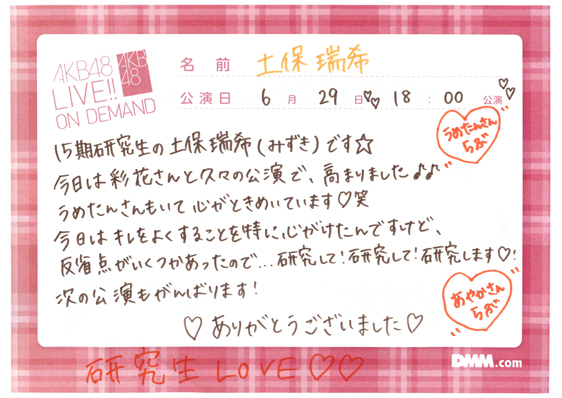 AKB48
LIVE!!
ON DEMAND
AKB
48
名前 土保瑞希
公演日 6月29日♡♡ 18:00 公演♡♡
15期研究生の土保瑞希(みずき)です☆
今日は彩花さんと久々の公演で、高まりました♪♪
うめたんさんもいて心がときめいています♡笑
今日はキレをよくすることを特に心がけたんですけど、
反省点がいくつかあったので…研究して!研究して!研究します♡!
次の公演もがんばります!
♡ありがとうございました♡
うめたんさん
らぶ
あやかさん
らぶ
研究生 LOVE♡♡
DMM.com